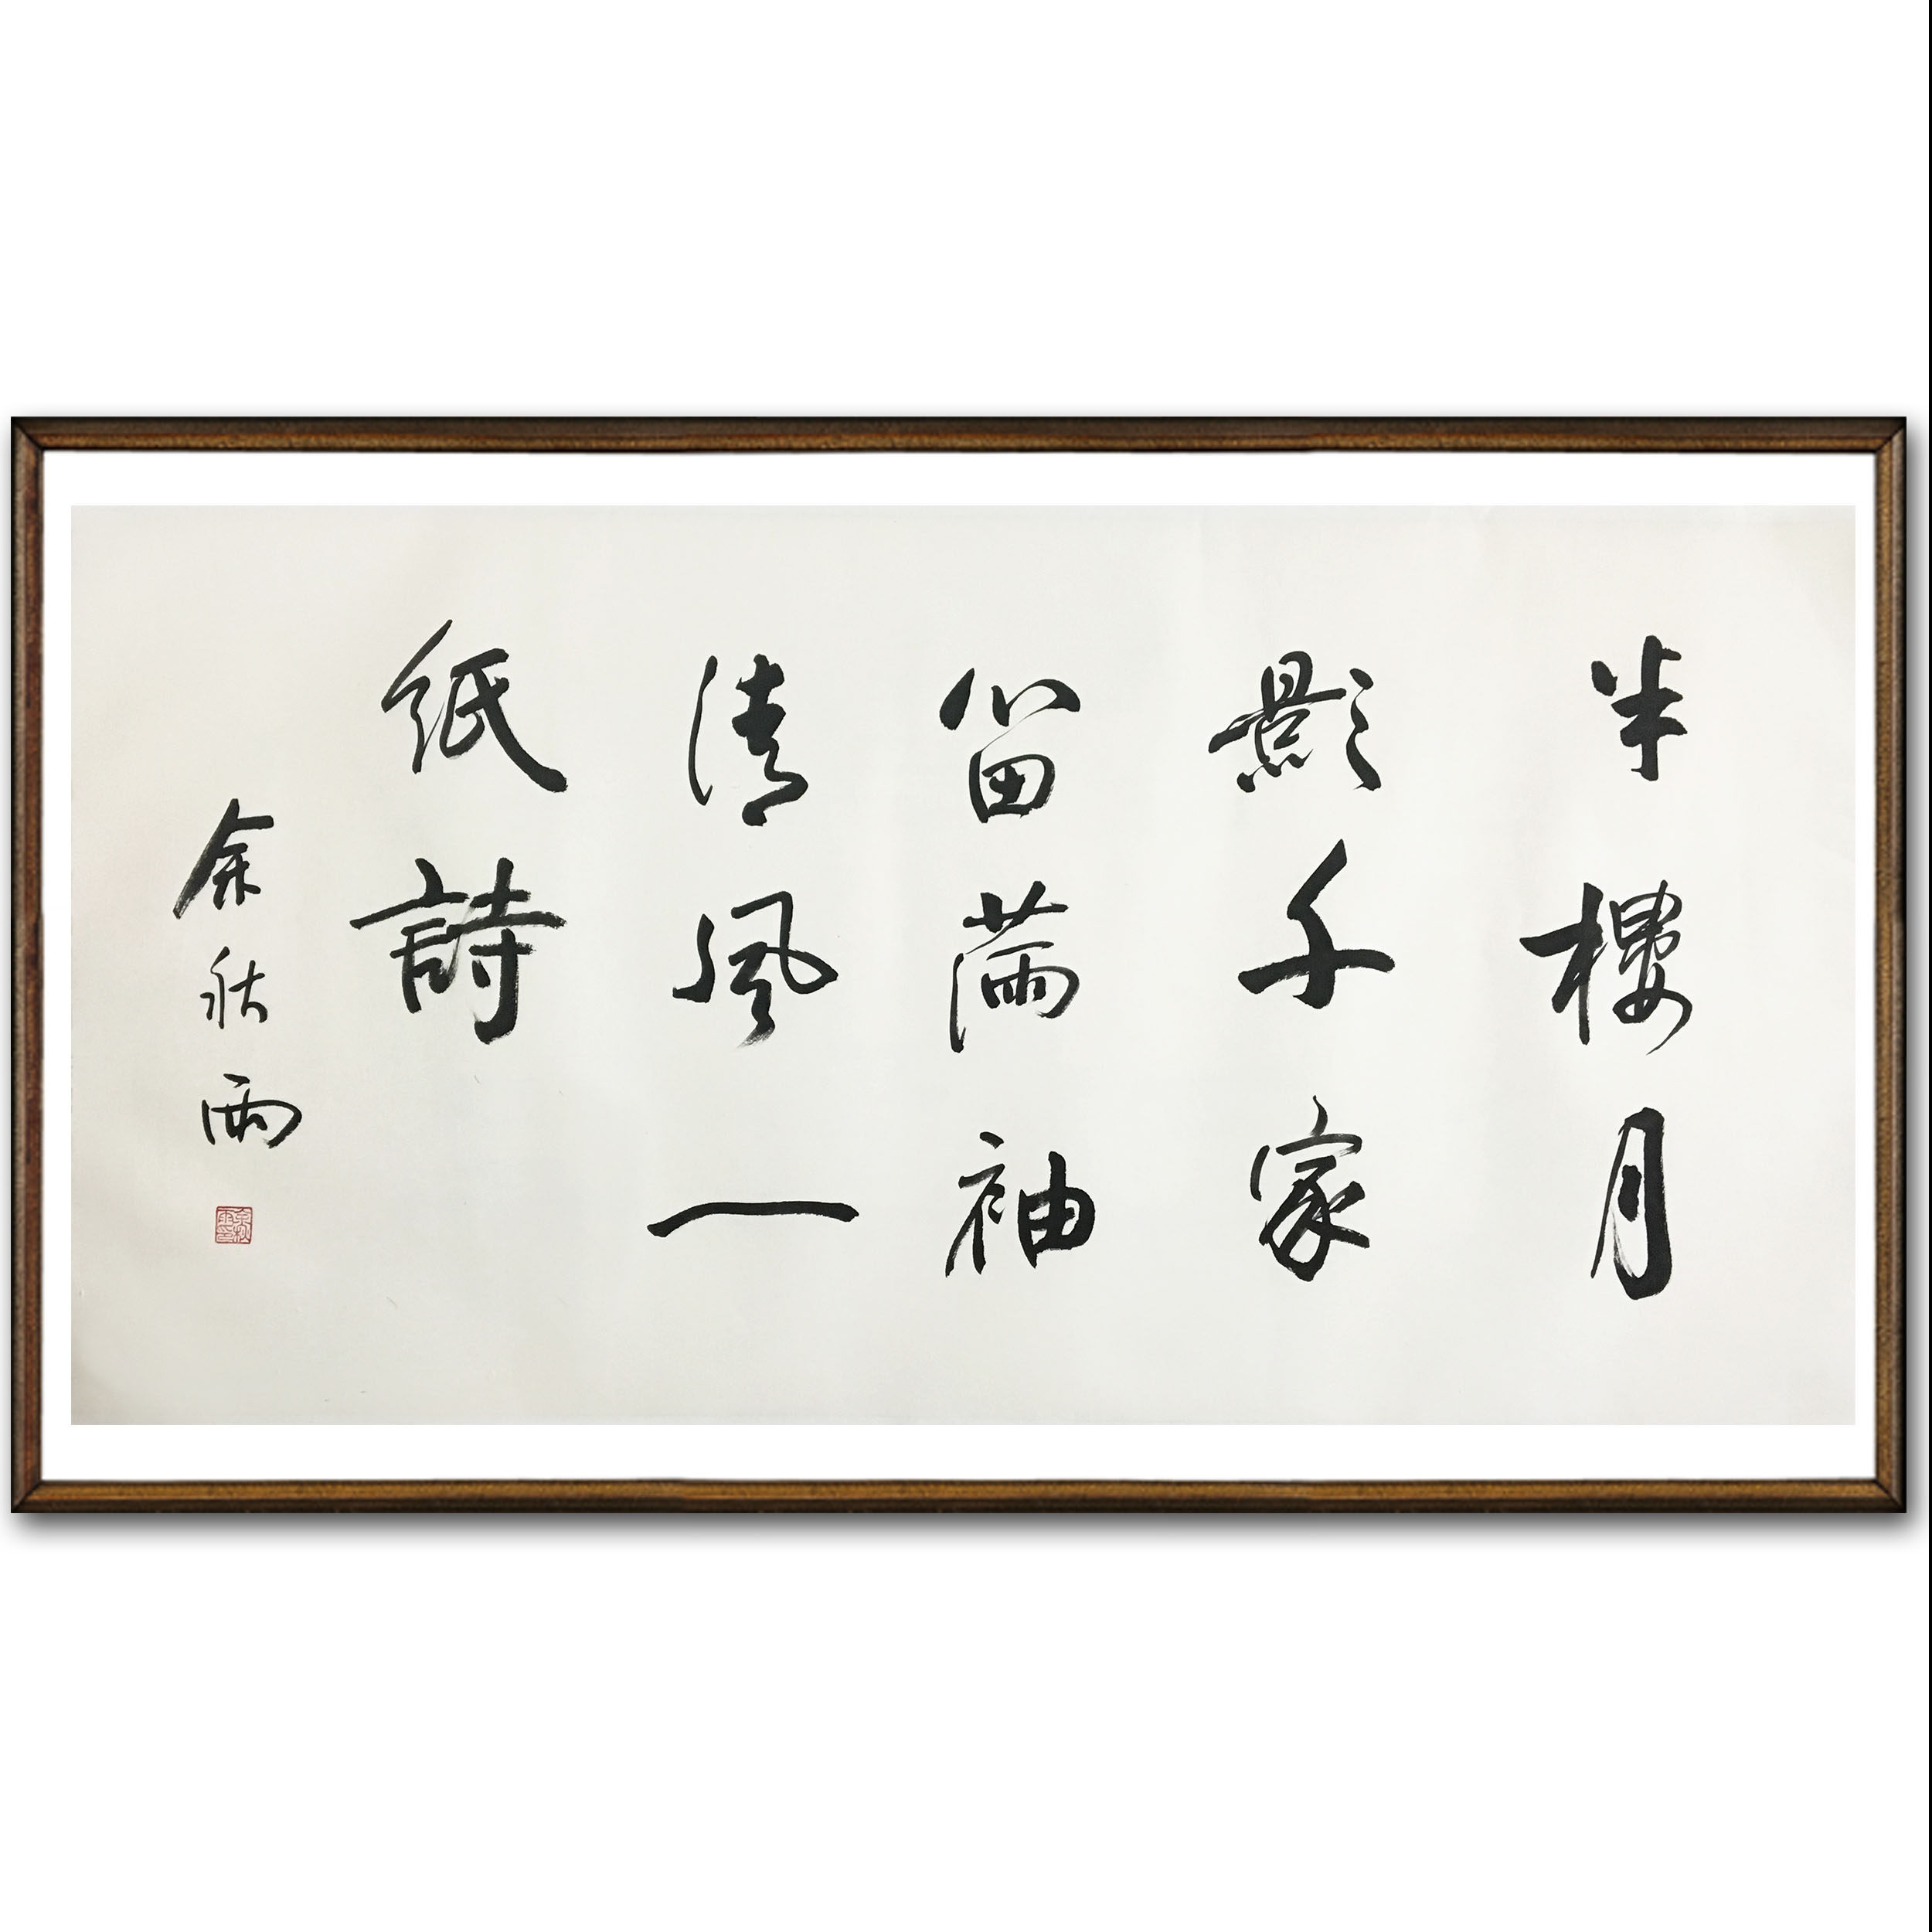 半樓月
影千家
笛滿袖
清風一
紙詩
余秋雨
余秋雨印